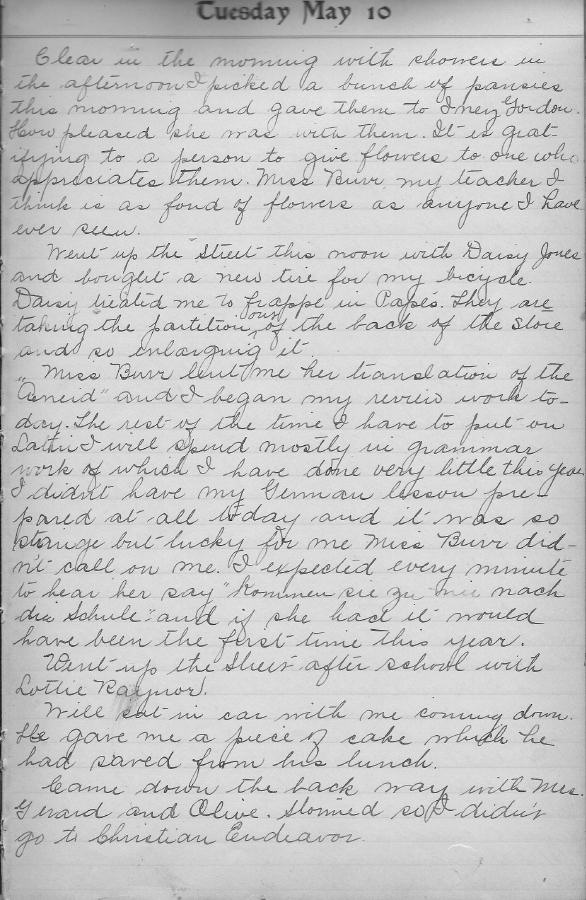 Tuesday May 10
Clear in the morning with showers in
the afternoon I picked a bunch of pansies
this morning and gave them to Inez Gordon.
How pleased she was with them. It is grat-
ifying to a person to give flowers to one who
appreciates them. Miss Burr, my teacher I
think is as fond of flowers as anyone I have
ever seen.
Went up the street this noon with Daisy Jones
and bought a new tire for my bicycle.
Daisy treated me to frappe in Papes. They are
taking the partition out of the back of the store
and so enlarging it
Miss Burr lent me her translation of the
"Aeneid" and I began my review work to-
day. The rest of the time I have to put on
Latin I will spend mostly in grammar
work of which I have done very little this year
I didn't have my German lesson pre-
pared at all today and it was so
strange but lucky for me Miss Burr did-
n't call on me. I expected every minute
to hear her say "Kommen sie zu mir nach
die Schule". and if she had it would
have been the first time this year.
Went up the street after school with
Lottie Raynor.
Will sat in car with me coming down.
He gave me a piece of cake which he
had saved from his lunch.
Came down the back way with Mrs.
Gerard and Olive. Stormed so I didn't
go to Christian Endeavor.